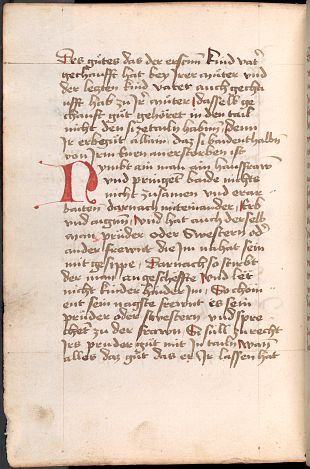 Des gutes das der ersten kind vat'
gechaufft hat bey irer muter vnd
der lesten kind vater auch gecha
ufft hab zu ir muter dasselb ge
chauft gut gehöret in den tail
nicht den si getailt habent denn
ir erbegut allain daz si baidenthalbn
von irn enen anerstorben ist
Nymbt ain man ain hausfraw
vnd pringet baide nichts
nicht zusamen vnd erar
baiten darnach miteinander erb
vnd aygen vnd hat auch derselb
man prüder oder swestern od'
ander frewnt die im nahet sein
mit gesippe Darnach so stirbt
der man an geschefte vnd let
nicht kinder hinder im So chom
ent sein nagste frewnt es sein
prüder oder swestern vnd spre
chet zu der frawen Si süll zu recht
irs pruder gut mit in tailn wann
alles daz gut das er ir lassen hat